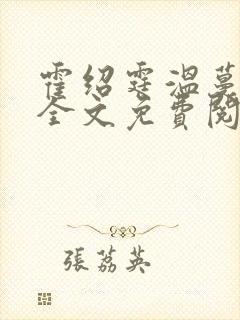 霍绍霆温蔓
全文免費閱
張荔英